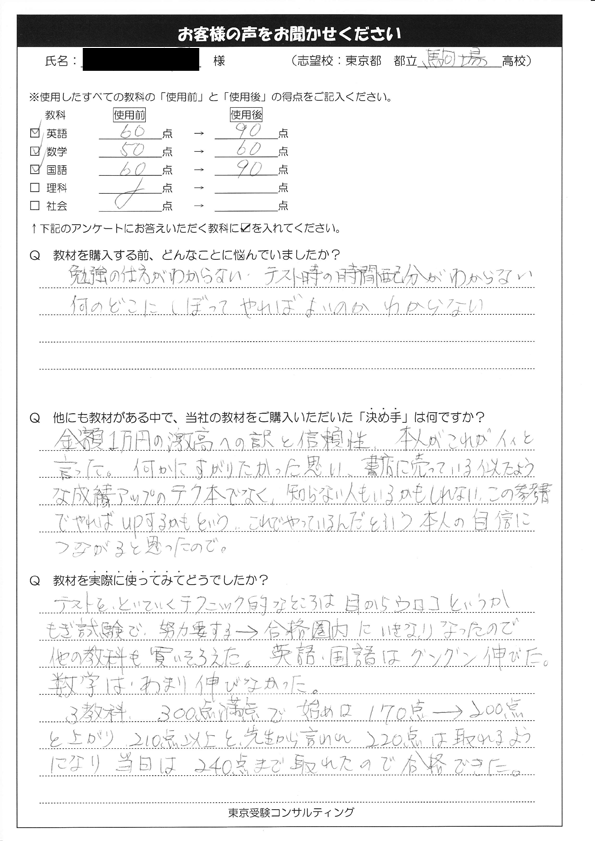 お客様の声をお聞かせください
氏名： 様 （志望校：東京都 都立 駒場 高校）
※使用したすべての教科の「使用前」と「使用後」の得点をご記入ください。
教科 使用前 使用後
☑ 英語 60 点 → 90 点
☑ 数学 50 点 → 60 点
☑ 国語 60 点 → 90 点
□ 理科 点 → 点
□ 社会 点 → 点
↑下記のアンケートにお答えいただく教科に☑を入れてください。
Q 教材を購入する前、どんなことに悩んでいましたか？
勉強の仕方がわからない・テスト時の時間配分がわからない
何のどこにしぼってやればよいのかわからない
Q 他にも教材がある中で、当社の教材をご購入いただいた「決め手」は何ですか？
金額1万円の激高への訳と信頼性、本人がこれがイイと
言った。何かにすがりたかった思い、書店に売っている似たよう
な成績アップのテク本でなく、知らない人もいるかもしれない、この参考書
でやればupするかもという、これでやっているんだという本人の自信に
つながると思ったので。
Q 教材を実際に使ってみてどうでしたか？
テストを、といていくテクニック的なところは目からウロコというか
もぎ試験で、努力要する→合格圏内にいきなりなったので
他の教科も買いそろえた。英語・国語はグングン伸びた。
数学は、あまり伸びなかった。
3教科、300点満点で始めは170点→200点
と上がり 210点以上と、先生から言われ 220点は取れるよう
になり 当日は240点まで取れたので合格できた。
東京受験コンサルティング